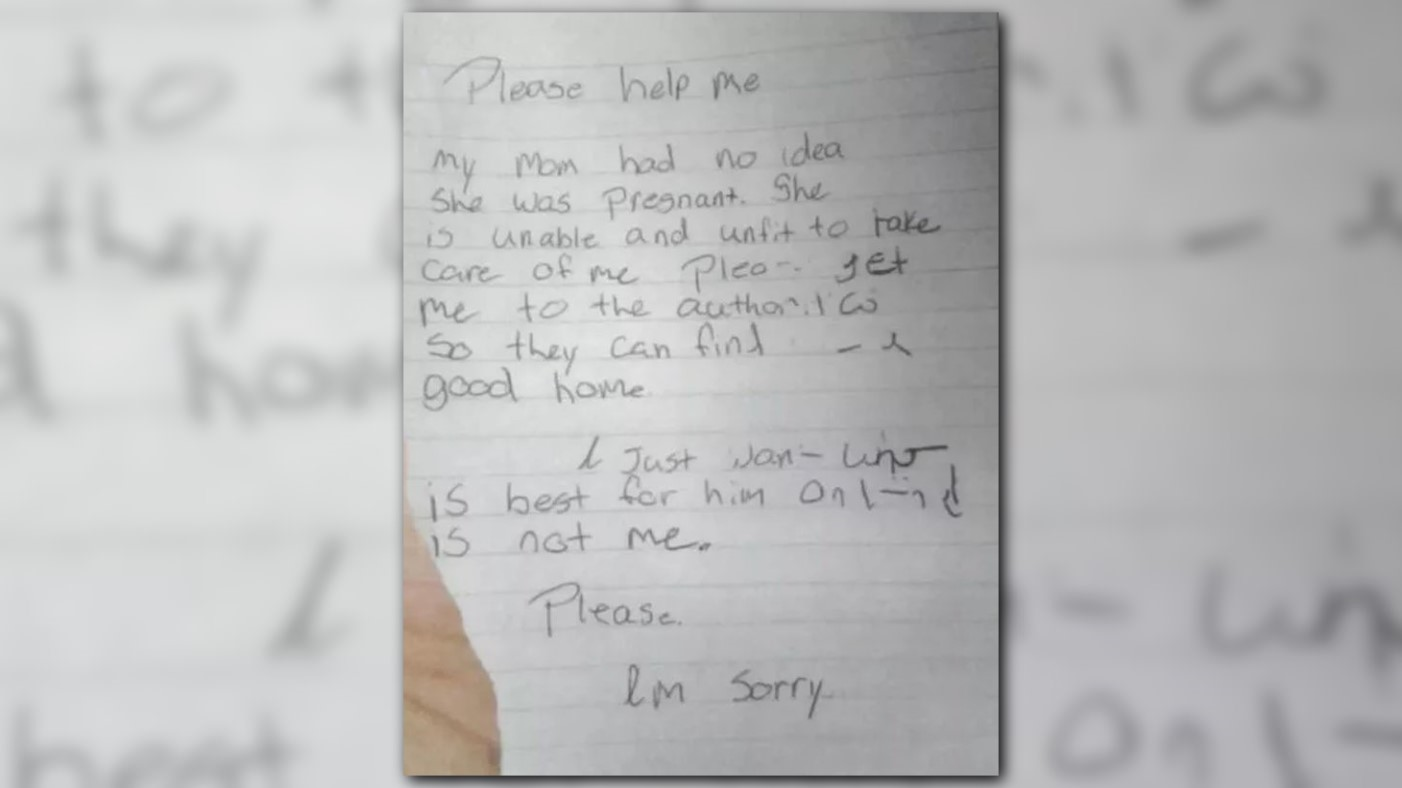 Please help me
my mom had no idea
She was pregnant. She
is unable and unfit to take
care of me Pleas get
me to the authorities
So they can find
good home.
I Just wan
is best for him and
is not me.
Please.
Im Sorry